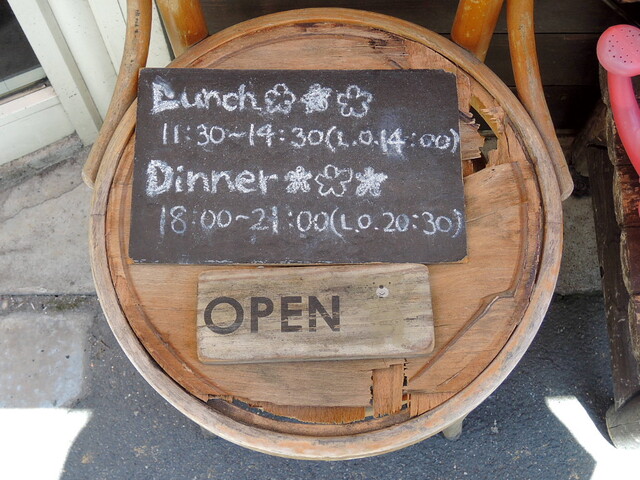 Lunch
11:30~14:30(L.O.14:00)
Dinner
18:00~21:00(L.O.20:30)
OPEN